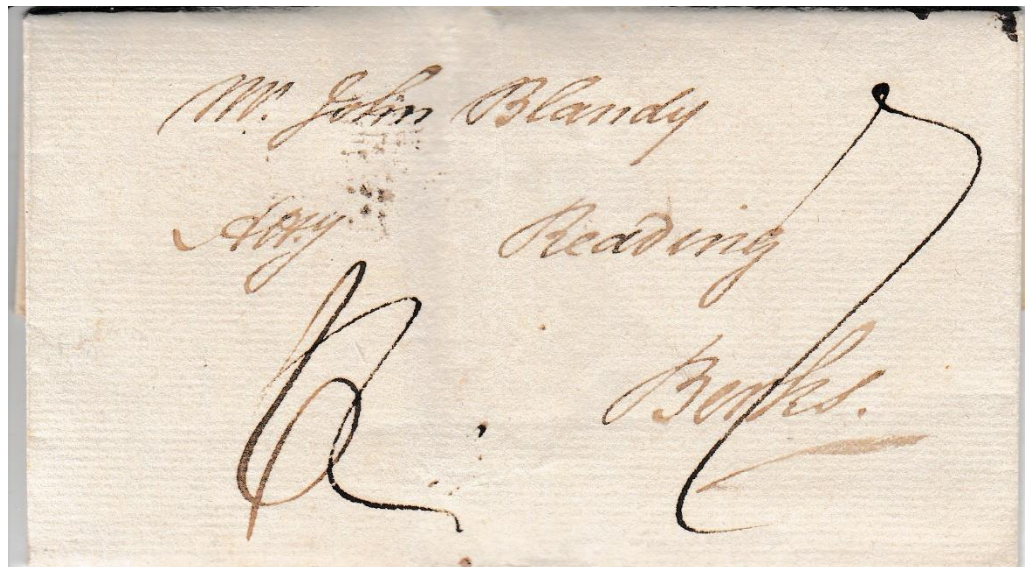 Mr. John Blandy
Atty Reading
Berks.